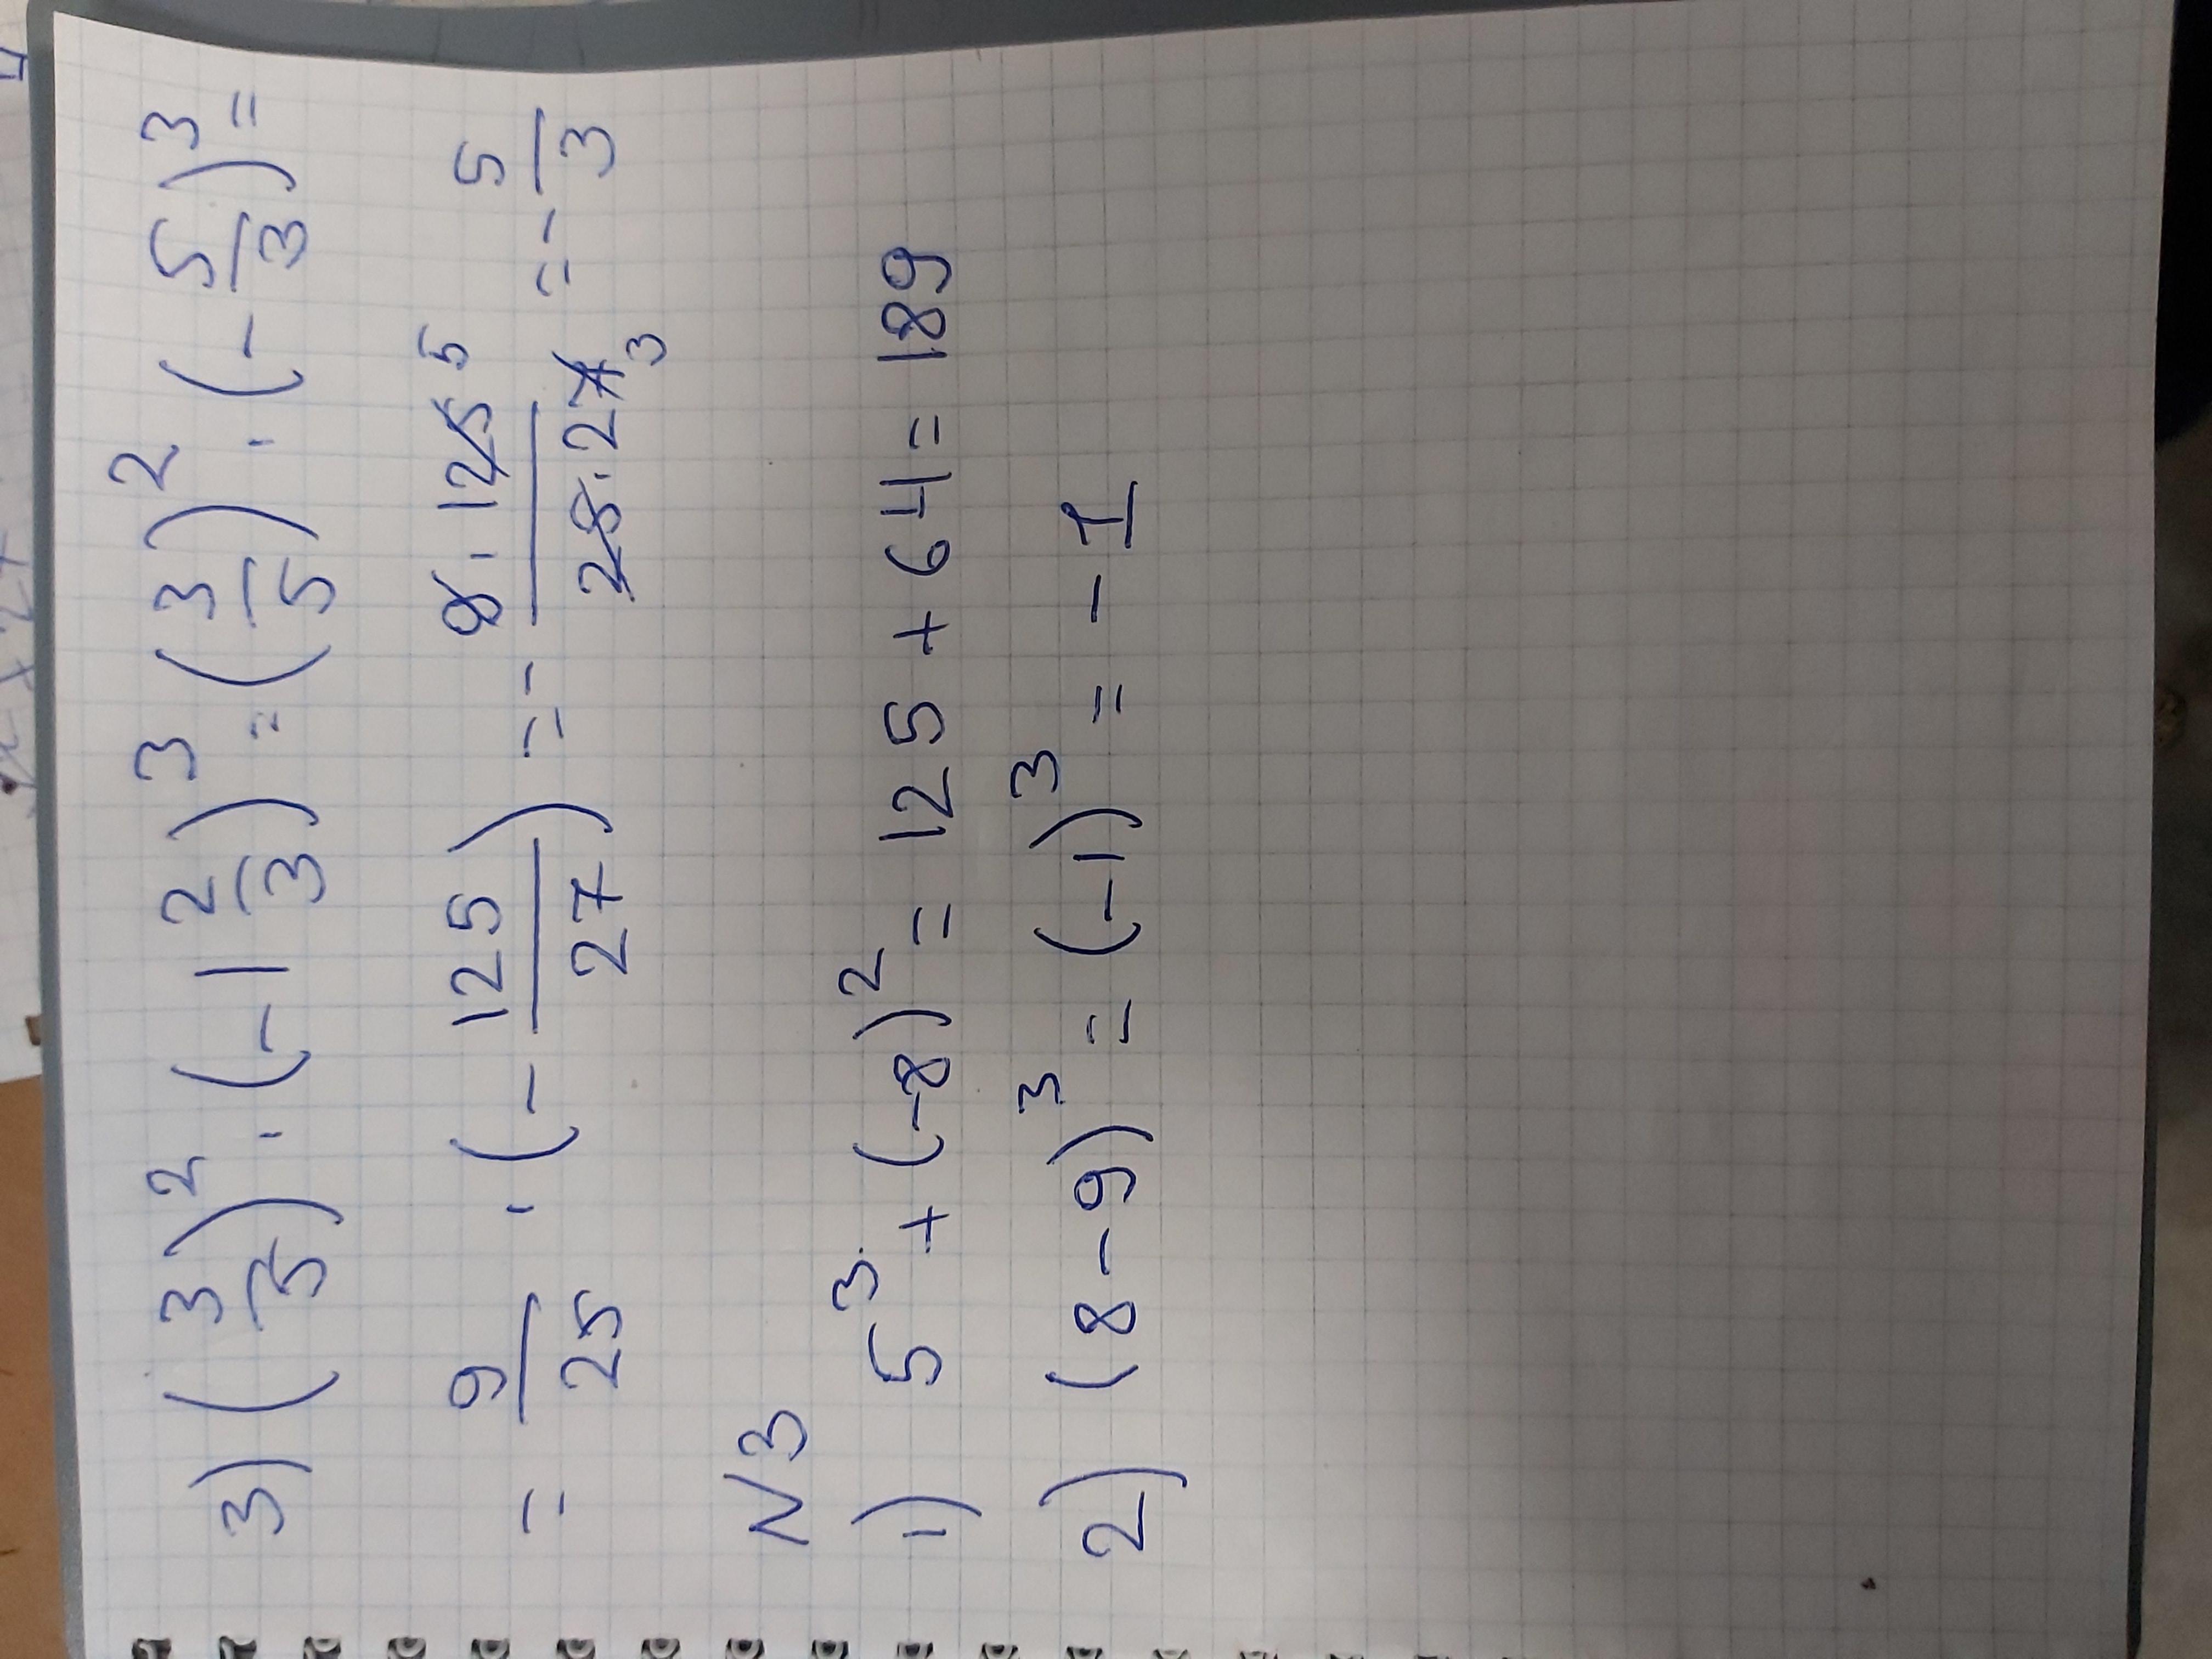 3) (3/5)² · (-1 2/3)³ = (3/5)² · (-5/3)³ =
= 9/25 · (-125/27) = - 9·125 5/25·27 3 = - 5/3
N3
1) 5³ + (-8)² = 125 + 64 = 189
2) (8-9)³ = (-1)³ = -1